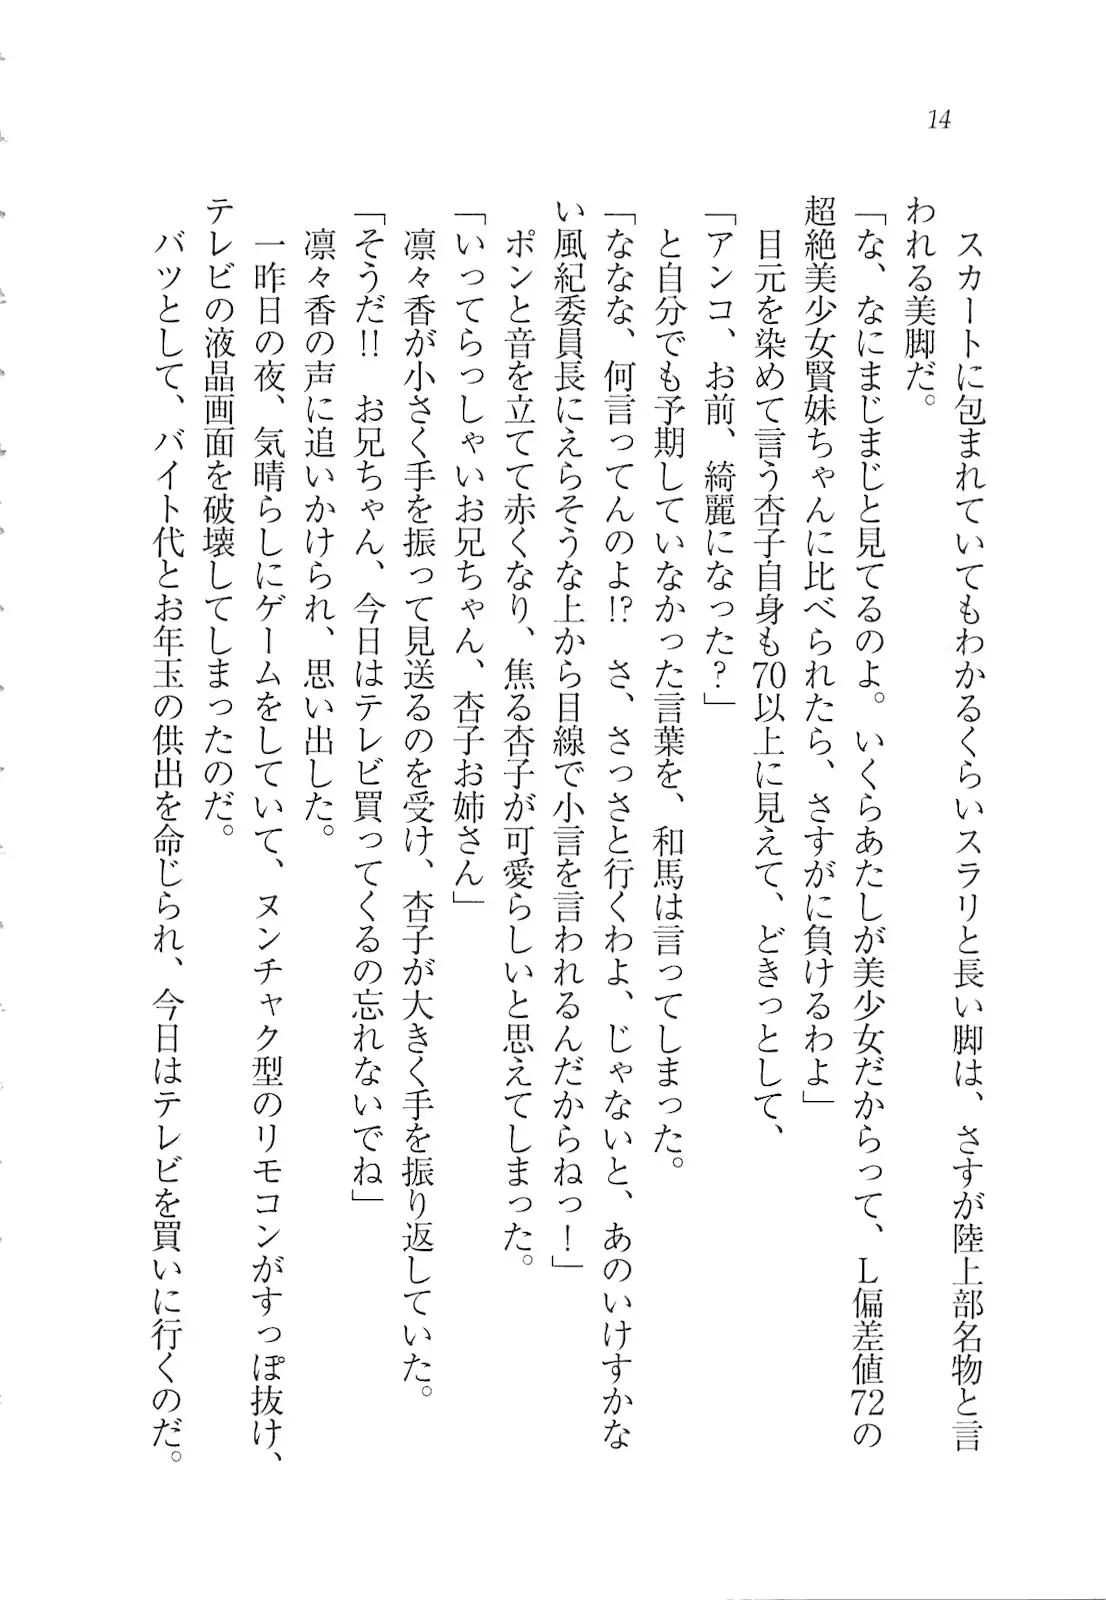 14
　スカートに包まれていてもわかるくらいスラリと長い脚は、さすが陸上部名物と言
われる美脚だ。
「な、なにまじまじと見てるのよ。いくらあたしが美少女だからって、L偏差値72の
超絶美少女賢妹ちゃんに比べられたら、さすがに負けるわよ」
　目元を染めて言う杏子自身も70以上に見えて、どきっとして、
「アンコ、お前、綺麗になった？」
　と自分でも予期していなかった言葉を、和馬は言ってしまった。
「ななな、何言ってんのよ!?　さ、さっさと行くわよ、じゃないと、あのいけすかな
い風紀委員長にえらそうな上から目線で小言を言われるんだからねっ！」
　ポンと音を立てて赤くなり、焦る杏子が可愛らしいと思えてしまった。
「いってらっしゃいお兄ちゃん、杏子お姉さん」
　凛々香が小さく手を振って見送るのを受け、杏子が大きく手を振り返していた。
「そうだ!!　お兄ちゃん、今日はテレビ買ってくるの忘れないでね」
　凛々香の声に追いかけられ、思い出した。
　一昨日の夜、気晴らしにゲームをしていて、ヌンチャク型のリモコンがすっぽ抜け、
テレビの液晶画面を破壊してしまったのだ。
　バツとして、バイト代とお年玉の供出を命じられ、今日はテレビを買いに行くのだ。